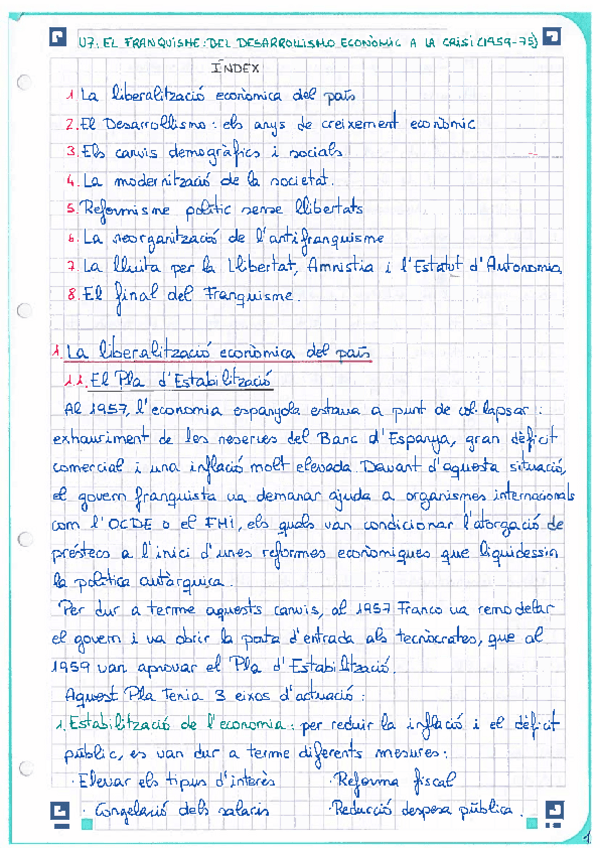 U7. EL FRANQUISME: DEL DESARROLLISMO ECONÒMIC A LA CRISI (1959-75)
ÍNDEX
1 La liberalització econòmica del país
2. El Desarrollismo: els anys de creixement econòmic
3. Els canvis demogràfics i socials
4. La modernització de la societat.
5. Reformisme polític sense llibertats
6. La reorganització de l'antifranquisme
7. La lluita per la Llibertat, Amnistia i l'Estatut d'Autonomia
8. El final del Franquisme.
1. La liberalització econòmica del país
1.1. El Pla d'Estabilització
Al 1957, l'economia espanyola estava a punt de col·lapsar:
exhauriment de les reserves del Banc d'Espanya, gran dèficit
comercial i una inflació molt elevada. Davant d'aquesta situació,
el govern franquista va demanar ajuda a organismes internacionals
com l'OCDE o el FMI, els quals van condicionar l'atorgació de
préstecs a l'inici d'unes reformes econòmiques que liquidessin
la política autàrquica.
Per dur a terme aquests canvis, al 1957 Franco va remodelar
el govern i va obrir la porta d'entrada als tecnòcrates, que al
1959 van aprovar el Pla d'Estabilització.
Aquest Pla Tenia 3 eixos d'actuació:
1. Estabilització de l'economia: per reduir la inflació i el dèficit
públic, es van dur a terme diferents mesures:
· Elevar els tipus d'interès · Reforma fiscal
· Congelació dels salaris · Reducció despesa pública.
1